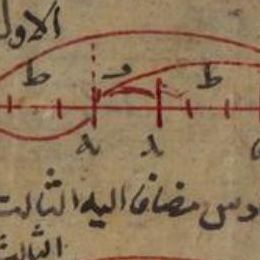 الاول
ط و ط
ه د
دس مضافا اليه الثالث
الثالث